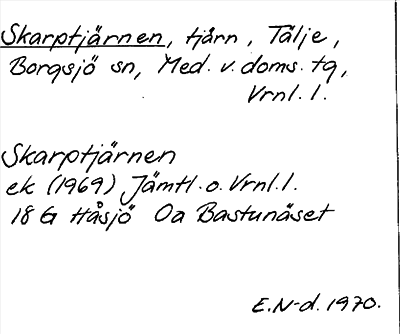 Skarptjärnen, tjärn, Tälje,
Borgsjö sn, Med. v. doms. tg,
Vrnl. l.
Skarptjärnen
ek (1969) Jämtl. o. Vrnl. l.
18 G Håsjö Oa Bastunäset
E.N-d. 1970.